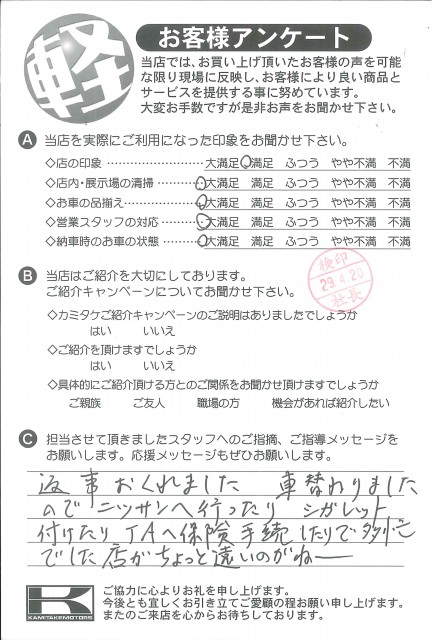 軽
お客様アンケート
当店では、お買い上げ頂いたお客様の声を可能
な限り現場に反映し、お客様により良い商品と
サービスを提供する事に努めています。
大変お手数ですが是非お声をお聞かせ下さい。
A 当店を実際にご利用になった印象をお聞かせ下さい。
◇店の印象 大満足 満足 ふつう やや不満 不満
◇店内・展示場の清掃 大満足 満足 ふつう やや不満 不満
◇お車の品揃え 大満足 満足 ふつう やや不満 不満
◇営業スタッフの対応 大満足 満足 ふつう やや不満 不満
◇納車時のお車の状態 大満足 満足 ふつう やや不満 不満
B 当店はご紹介を大切にしております。
ご紹介キャンペーンについてお聞かせ下さい。
検印
29.4.20
社長
◇カミタケご紹介キャンペーンのご説明はありましたでしょうか
はい いいえ
◇ご紹介を頂けますでしょうか
はい いいえ
◇具体的にご紹介頂ける方とのご関係をお聞かせ頂けますでしょうか
ご親族 ご友人 職場の方 機会があれば紹介したい
C 担当させて頂きましたスタッフへのご指摘、ご指導メッセージを
お願いします。応援メッセージもぜひお願いします。
返事おくれました 車替わりました
のでニッサンへ行ったり シガレット
付けたり JAへ保険手続したりで多忙
でした 店がちょっと遠いのがねー
K
KAMITAKEMOTORS
ご協力に心よりお礼を申し上げます。
今後とも宜しくお引き立てご愛顧の程お願い申し上げます。
またのご来店を心からお待ちしております。